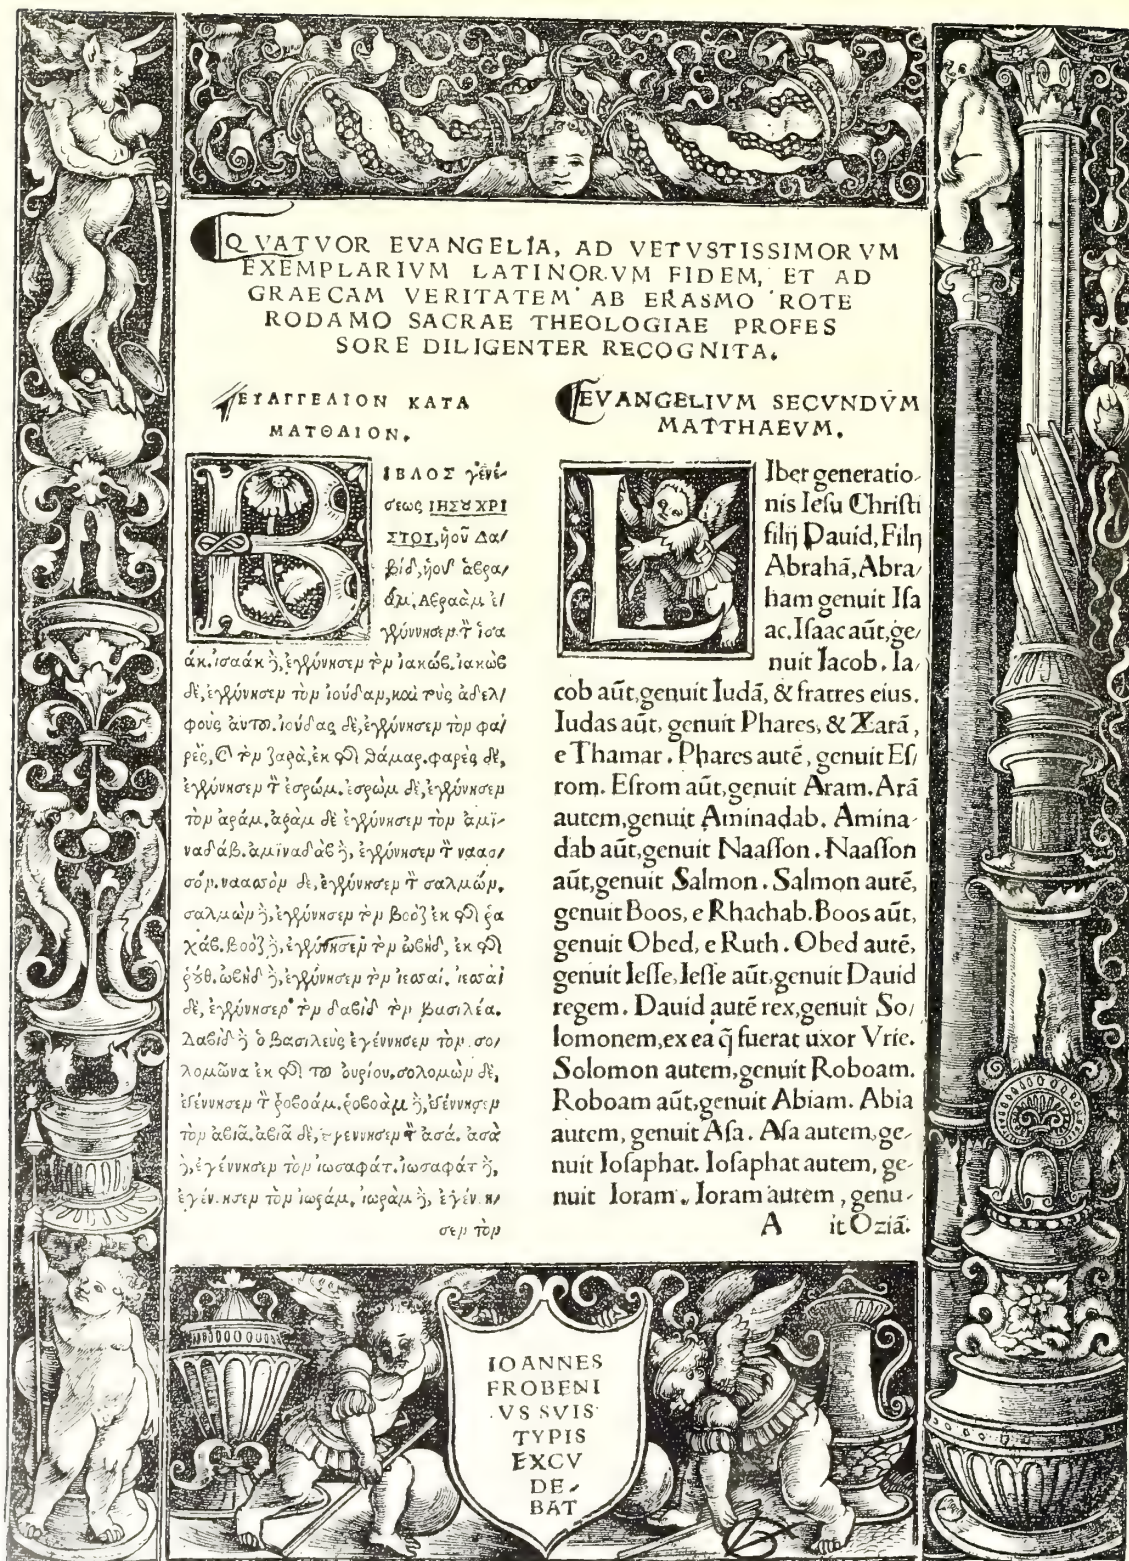 QVATVOR EVANGELIA, AD VETVSTISSIMORVM
EXEMPLARIVM LATINORVM FIDEM, ET AD
GRAECAM VERITATEM AB ERASMO ROTE
RODAMO SACRAE THEOLOGIAE PROFES
SORE DILIGENTER RECOGNITA.
ΕΥΑΓΓΕΛΙΟΝ ΚΑΤΑ
ΜΑΤΘΑΙΟΝ.
ΒΙΒΛΟΣ γενέ-
σεως ΙΗΣȣ ΧΡΙ
ΣΤΟΥ, ἡοῦ Δα/
βίδ, ἡοῦ ἀβρα/
άμ, Αβραὰμ ἐ/
γέννησεμ τ̀ ἰσα
άκ. ἰσαάκ δ̀, ἐγέννησεμ τὸμ ἰακώβ. ἰακὼβ
δὲ, ἐγέννησεμ τὸμ ἰούδαμ, καὶ τοὺς ἀδελ/
φοὺς ἀυτοῦ. ἰούδας δὲ, ἐγέννησεμ τὸμ φα/
ρὲς, καὶ τὸμ ζαρὰ, ἐκ τῆς θάμαρ. φαρὲς δὲ,
ἐγέννησεμ τ̀ ἐσρώμ. ἐσρὼμ δὲ, ἐγέννησεμ
τὸμ ἀράμ. ἀρὰμ δὲ ἐγέννησεμ τὸμ ἀμϊ-
ναδάβ. ἀμϊναδὰβ δ̀, ἐγέννησεμ τ̀ ναασ/
σόμ. ναασσὸμ δὲ, ἐγέννησεμ τ̀ σαλμώμ.
σαλμὼμ δ̀, ἐγέννησεμ τὸμ βοὸζ ἐκ τῆς ῥα
χάβ. βοὸζ δ̀, ἐγέννησεμ τὸμ ὠβὴδ, ἐκ τῆς
ῥούθ. ὠβὴδ δ̀, ἐγέννησεμ τὸμ ἰεσσαί. ἰεσσαὶ
δὲ, ἐγέννησεμ τὸμ δαβὶδ τὸμ βασιλέα.
Δαβὶδ δ̀ ὁ βασιλεὺς ἐγέννησεμ τὸμ σο/
λομῶνα ἐκ τῆς τοῦ ουρίου. σολομὼμ δὲ,
ἐγέννησεμ τ̀ ῥοβοάμ. ῥοβοὰμ δ̀, ἐγέννησεμ
τὸμ ἀβιᾶ. ἀβιᾶ δὲ, ἐγέννησεμ τ̀ ἀσά. ἀσὰ
δ̀, ἐγέννησεμ τὸμ ἰωσαφάτ. ἰωσαφὰτ δ̀,
ἐγέννησεμ τὸμ ἰωράμ. ἰωρὰμ δ̀, ἐγέννη/
σεμ τὸμ
EVANGELIVM SECVNDVM
MATTHAEVM.
LIber generatio-
nis Iesu Christi
filij Dauid, Filij
Abrahã, Abra/
ham genuit Isa
ac. Isaac aũt, ge/
nuit Iacob. Ia/
cob aũt, genuit Iudã, & fratres eius.
Iudas aũt, genuit Phares, & Zarã,
e Thamar. Phares autẽ, genuit Es/
rom. Esrom aũt, genuit Aram. Arã
autem, genuit Aminadab. Amina-
dab aũt, genuit Naasson. Naasson
aũt, genuit Salmon. Salmon autẽ,
genuit Boos, e Rhachab. Boos aũt,
genuit Obed, e Ruth. Obed autẽ,
genuit Iesse, Iesse aũt, genuit Dauid
regem. Dauid autẽ rex, genuit So/
lomonem, ex ea q̃ fuerat uxor Vrie.
Solomon autem, genuit Roboam.
Roboam aũt, genuit Abiam. Abia
autem, genuit Asa. Asa autem, ge-
nuit Iosaphat. Iosaphat autem, ge-
nuit Ioram. Ioram autem, genu-
A it Oziã.
IOANNES
FROBENI
VS SVIS
TYPIS
EXCV
DE-
BAT